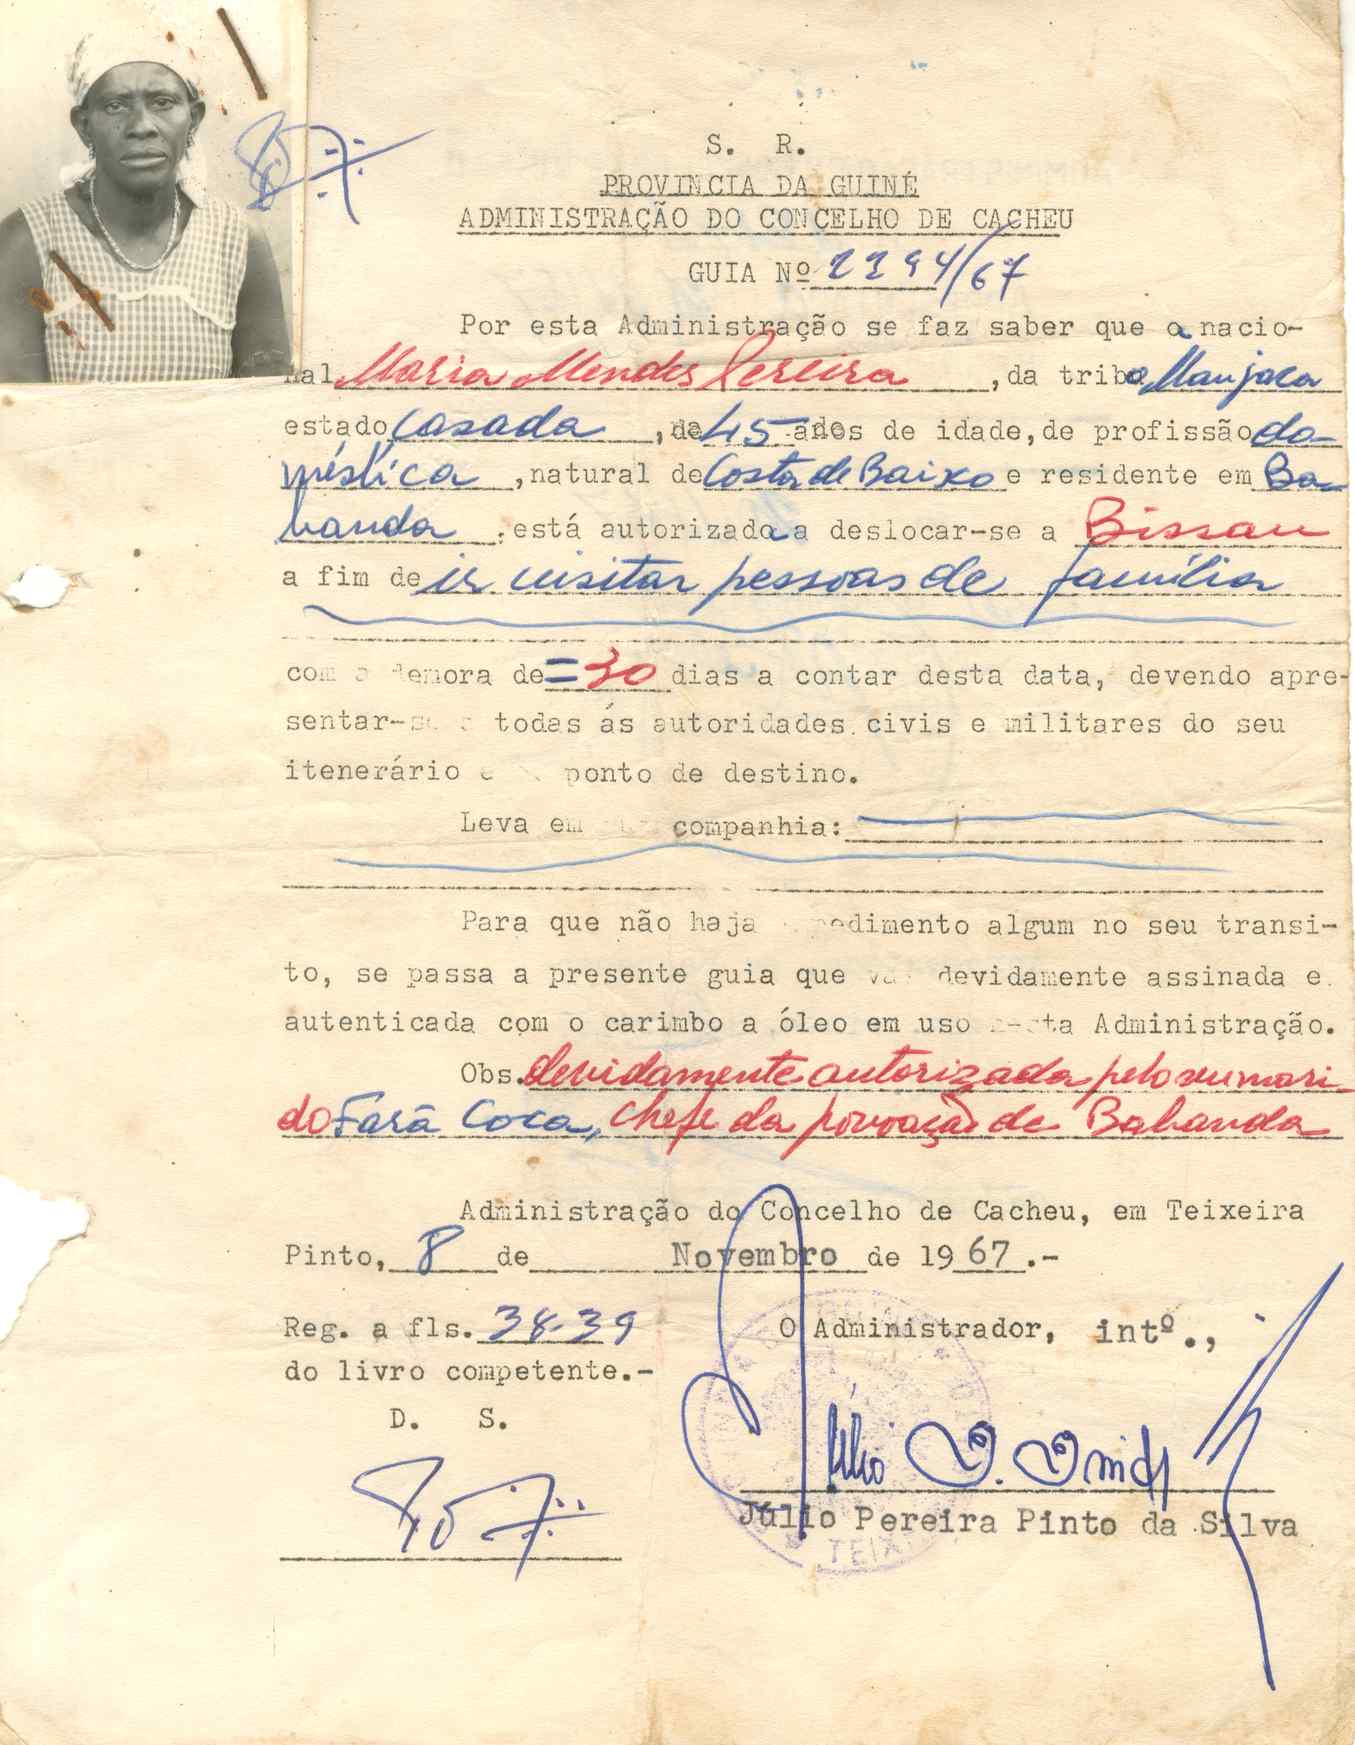 S. R.
PROVINCIA DA GUINÉ
ADMINISTRAÇÃO DO CONCELHO DE CACHEU
GUIA Nº 2294/67
Por esta Administração se faz saber que a nacio-
nal Maria Mendes Pereira, da tribo Manjaca
estado casada, de 45 anos de idade, de profissão do-
méstica, natural de Costa de Baixo e residente em Ba-
banda, está autorizada a deslocar-se a Bissau
a fim de ir visitar pessoas de família
com a demora de = 30 dias a contar desta data, devendo apre-
sentar-se a todas ás autoridades civis e militares do seu
itenerário e ponto de destino.
Leva em sua companhia:
Para que não haja impedimento algum no seu transi-
to, se passa a presente guia que vai devidamente assinada e
autenticada com o carimbo a óleo em uso nesta Administração.
Obs. devidamente autorizada pelo seu mari-
do Fará Coca, chefe da povoação de Babanda
Administração do Concelho de Cacheu, em Teixeira
Pinto, 8 de Novembro de 1967.-
Reg. a fls. 38-39
O Administrador, intº.,
do livro competente.-
D. S.
Júlio Pereira Pinto da Silva